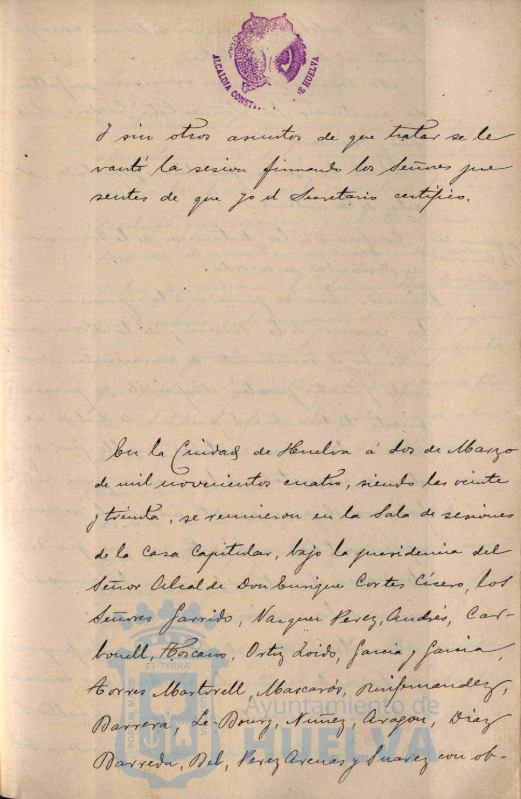 ALCALDIA CONST DE HUELVA
Y sin otros asuntos de que tratar se le
vantó la sesion firmando los Señores pre
sentes de que yo el Secretario certifico.
En la Ciudad de Huelva á dos de Marzo
de mil novecientos cuatro, siendo las veinte
y treinta, se reunieron en la Sala de sesiones
de la Casa Capitular, bajo la presidencia del
Señor Alcalde Don Enrique Cortes Cícero, los
Señores Garrido, Vazquez Perez, Andrés, Car-
bonell, Toscano, Ortiz Loido, Garcia y Garcia,
Torres Martorell, Mascarós, Ruifernandez,
Barrera, Le-Bourg, Nuñez, Aragon, Diaz
Barreda, Bel, Perez Arenas y Suarez con ob-
ET TERRÆ
PORTUS MARIS
Ayuntamiento de
HUELVA